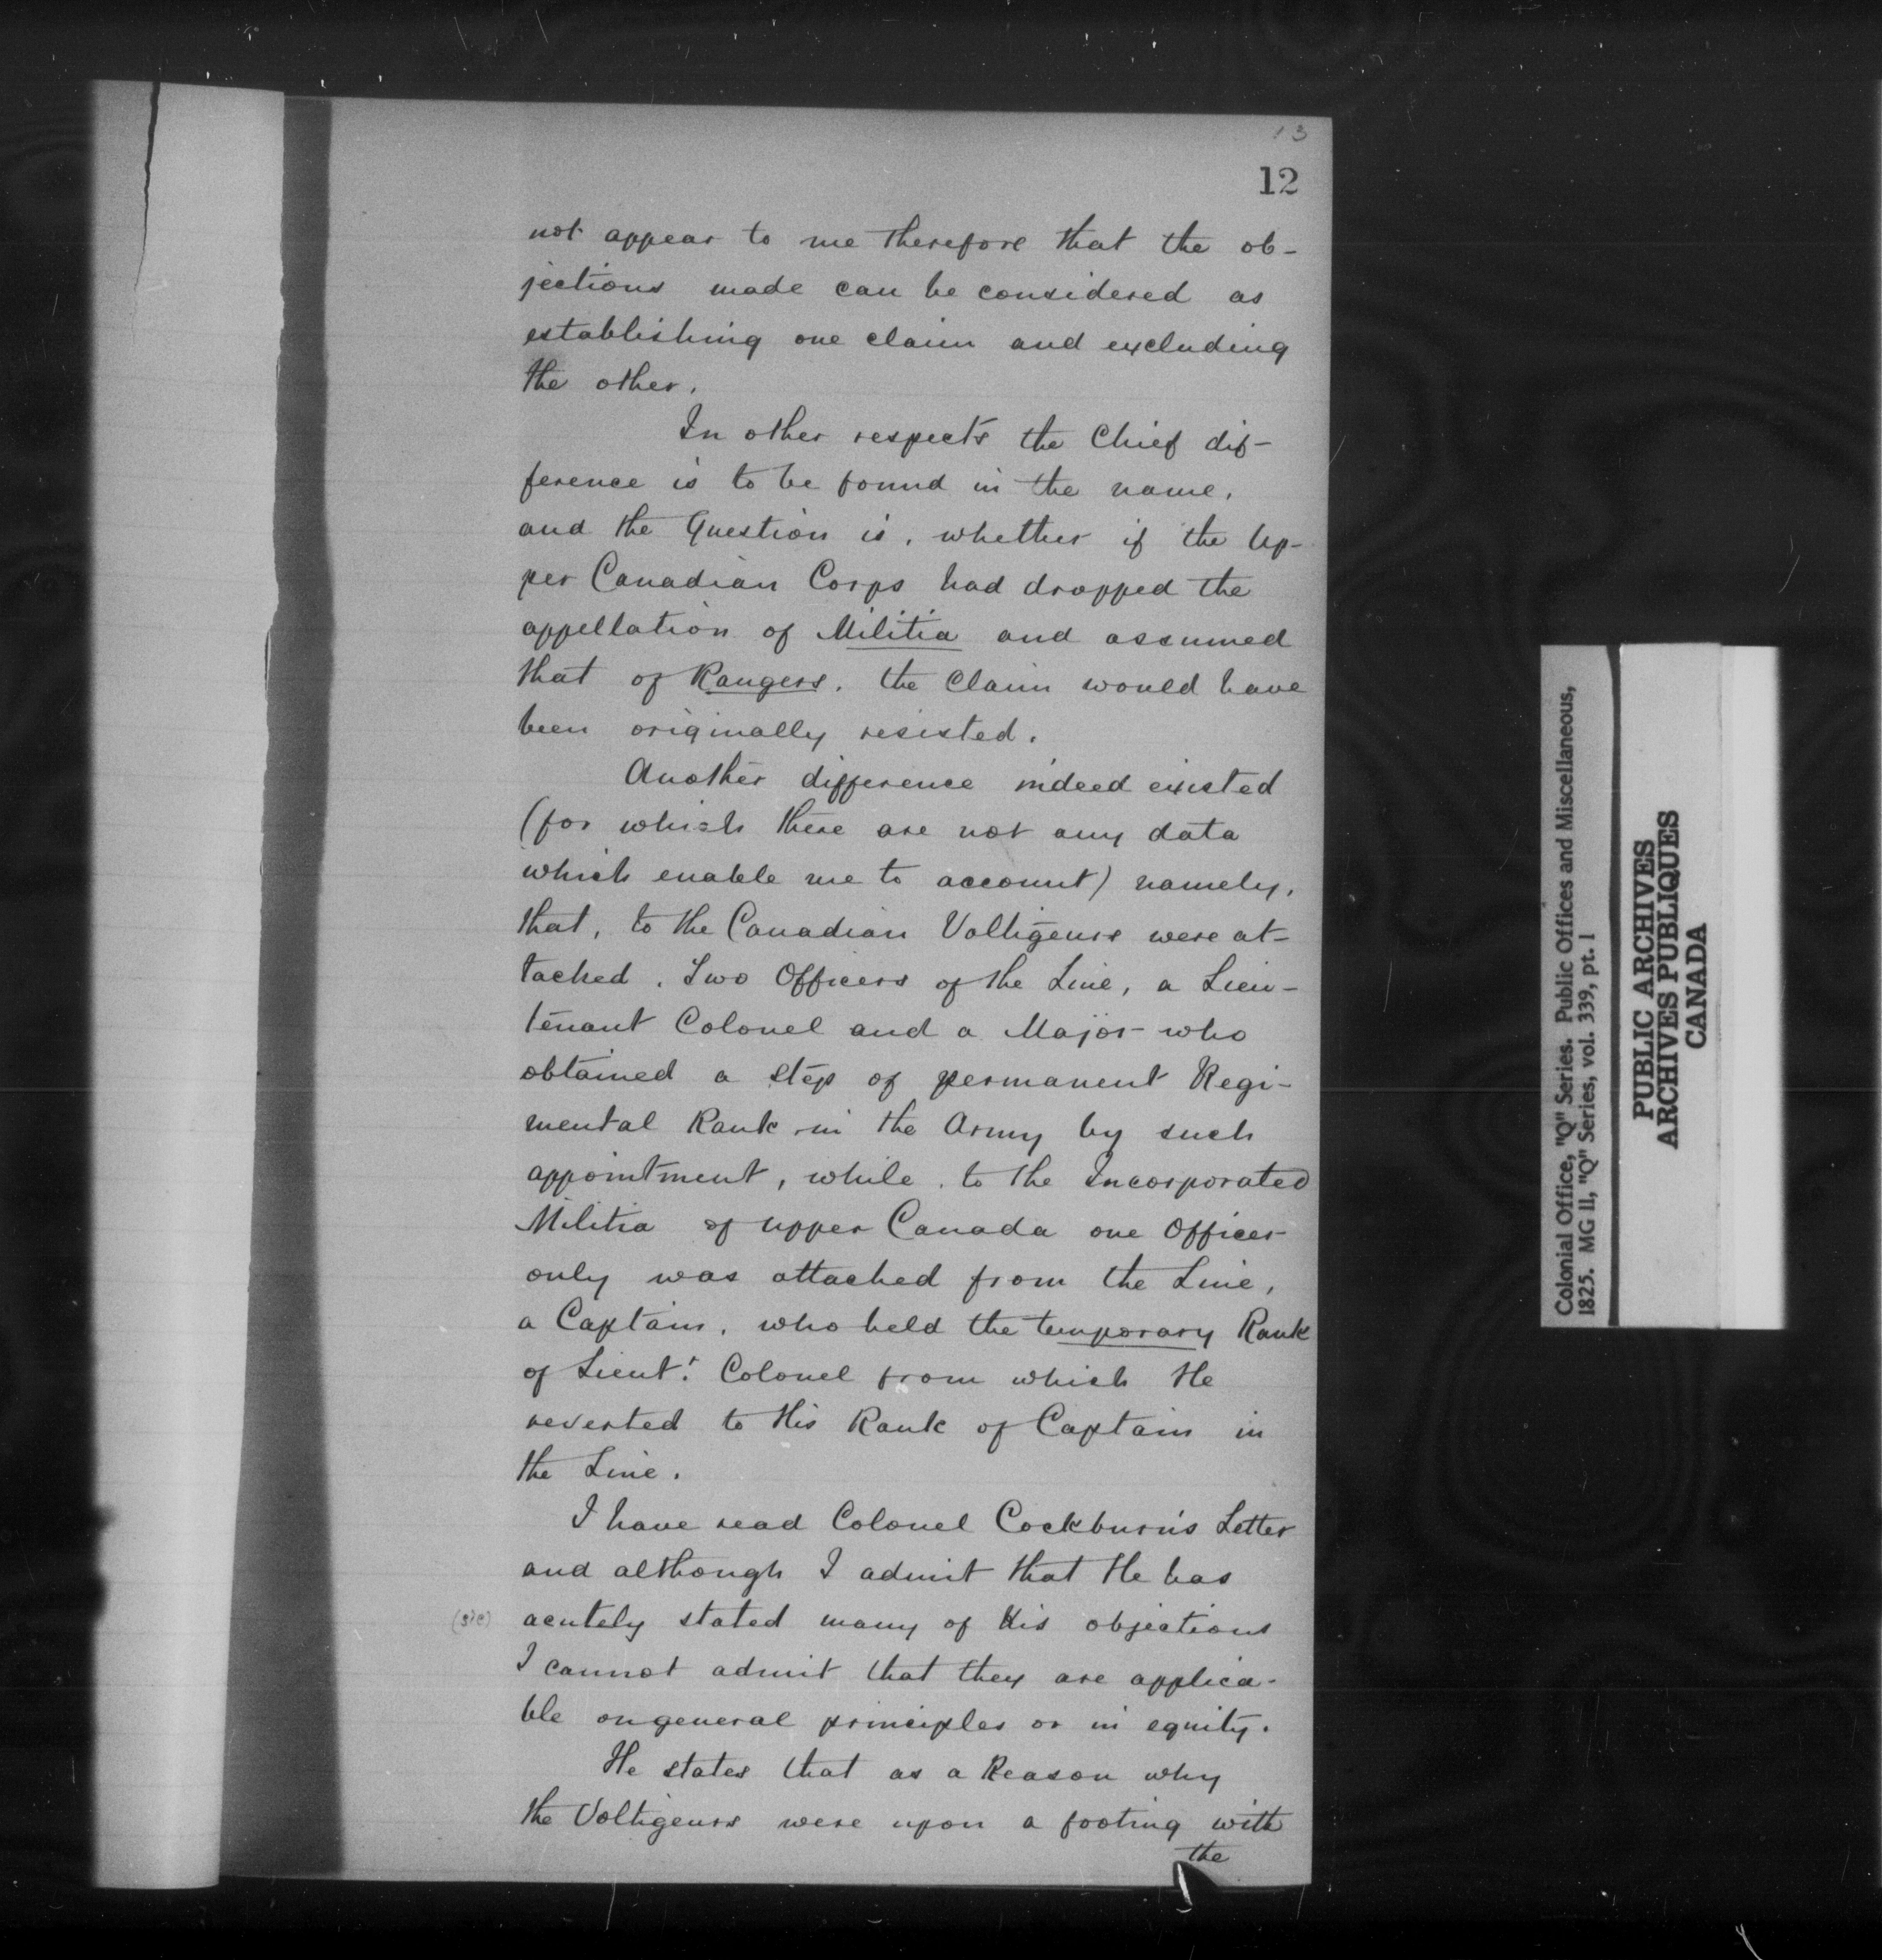 13
12
not appear to me therefore that the ob-
jections made can be considered as
establishing one claim and excluding
the other.
In other respects the Chief dif-
ference is to be found in the name,
and the Question is, whether if the Up-
per Canadian Corps had dropped the
appellation of Militia and assumed
that of Rangers, the Claim would have
been originally resisted.
Another difference indeed existed
(for which there are not any data
which enable me to account) namely,
that, to the Canadian Voltigeurs were at-
tached, Two Officers of the Line, a Lieu-
tenant Colonel and a Major who
obtained a step of permanent Regi-
mental Rank in the Army by such
appointment, while, to the Incorporated
Militia of Upper Canada one Officer
only was attached from the Line,
a Captain, who held the temporary Rank
of Lieut. Colonel from which He
reverted to His Rank of Captain in
the Line.
I have read Colonel Cockburn's Letter
and although I admit that He has
(sic) acutely stated many of His objections
I cannot admit that they are applica-
ble on general principles or in equity.
He states that as a Reason why
the Voltigeurs were upon a footing with
the
Colonial Office, "Q" Series. Public Offices and Miscellaneous,
1825. MG 11, "Q" Series, vol. 339, pt. 1
PUBLIC ARCHIVES
ARCHIVES PUBLIQUES
CANADA